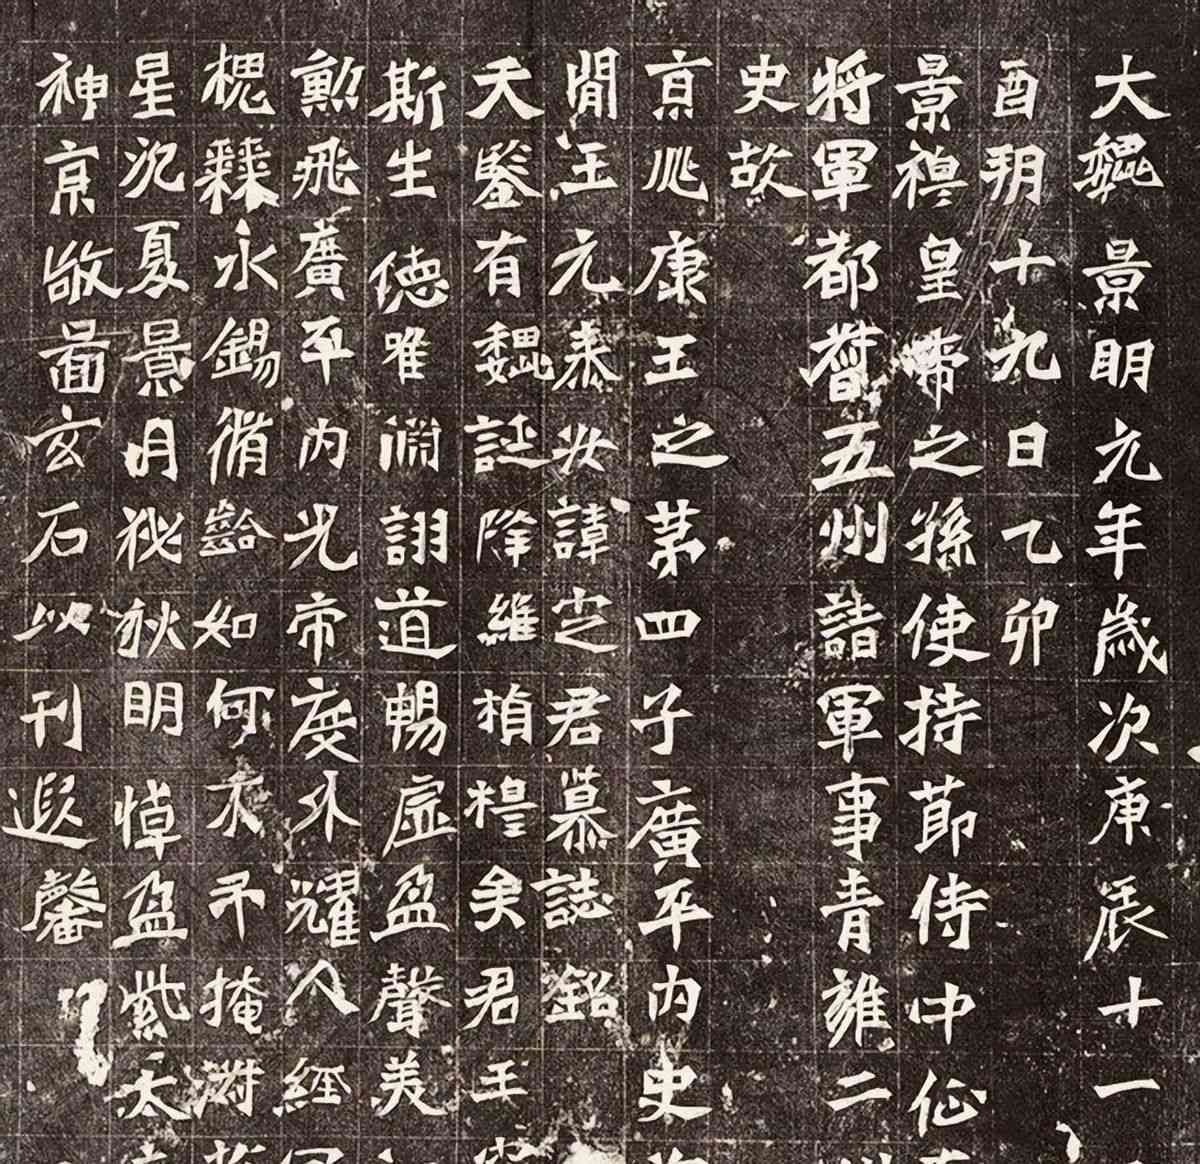 大魏景明元年歲次庚辰十一
酉朔十九日乙卯
景穆皇帝之孫使持節侍中征
將軍都督五州諸軍事青雍二
史故
京兆康王之第四子廣平內史
閒王元泰安諱定君墓誌銘
天鑒有魏誕降維楨糧矣君王
斯生德唯淵詡道暢虛盈聲美
勳飛廣平內光帝度外耀人經
槐棘永錫脩齡如何不弔掩澍
星沉夏景月秘秋明悼盈紫天
神京敬圖玄石以刊遐馨